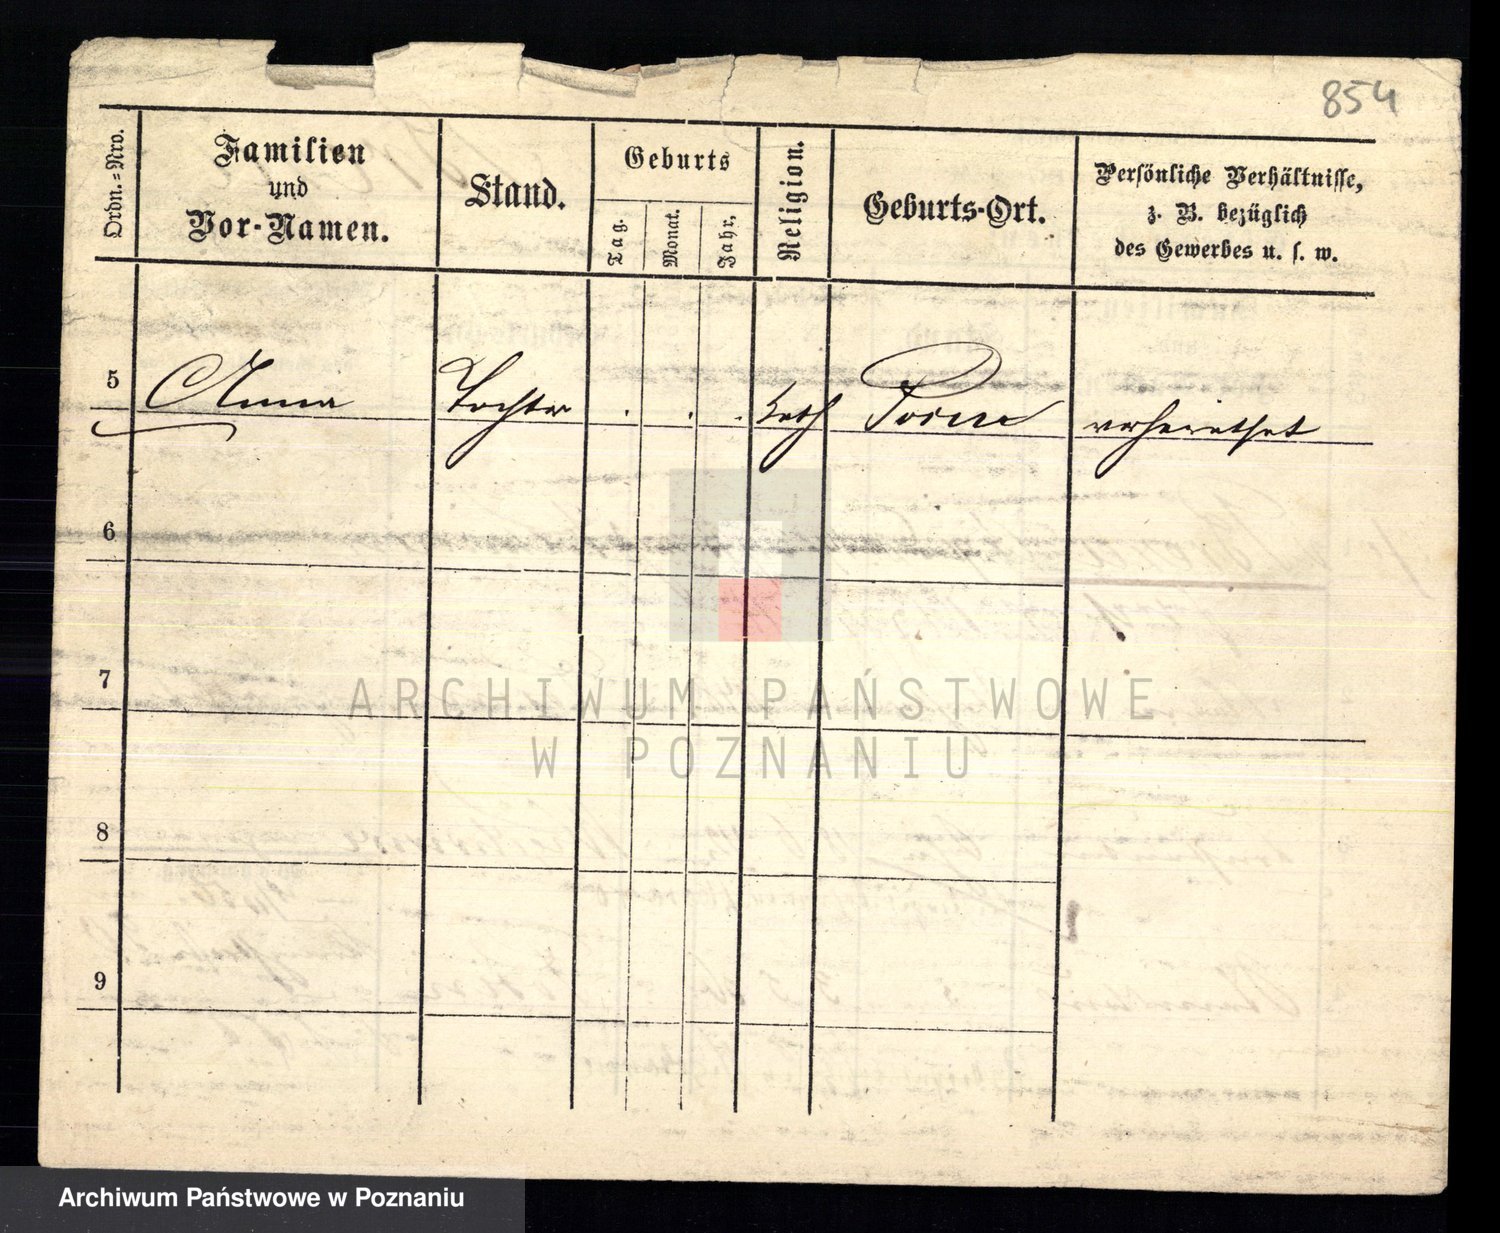 854
Ordn.=Nro.
Familien
und
Vor-Namen.
Stand.
Geburts
Tag.
Monat.
Jahr.
Religion.
Geburts-Ort.
Persönliche Verhältnisse,
z. B. bezüglich
des Gewerbes u. s. w.
5 Anna Tochter . . . kath Posen verheirathet
6
7
ARCHIWUM PAŃSTWOWE
W POZNANIU
8
9
Archiwum Państwowe w Poznaniu